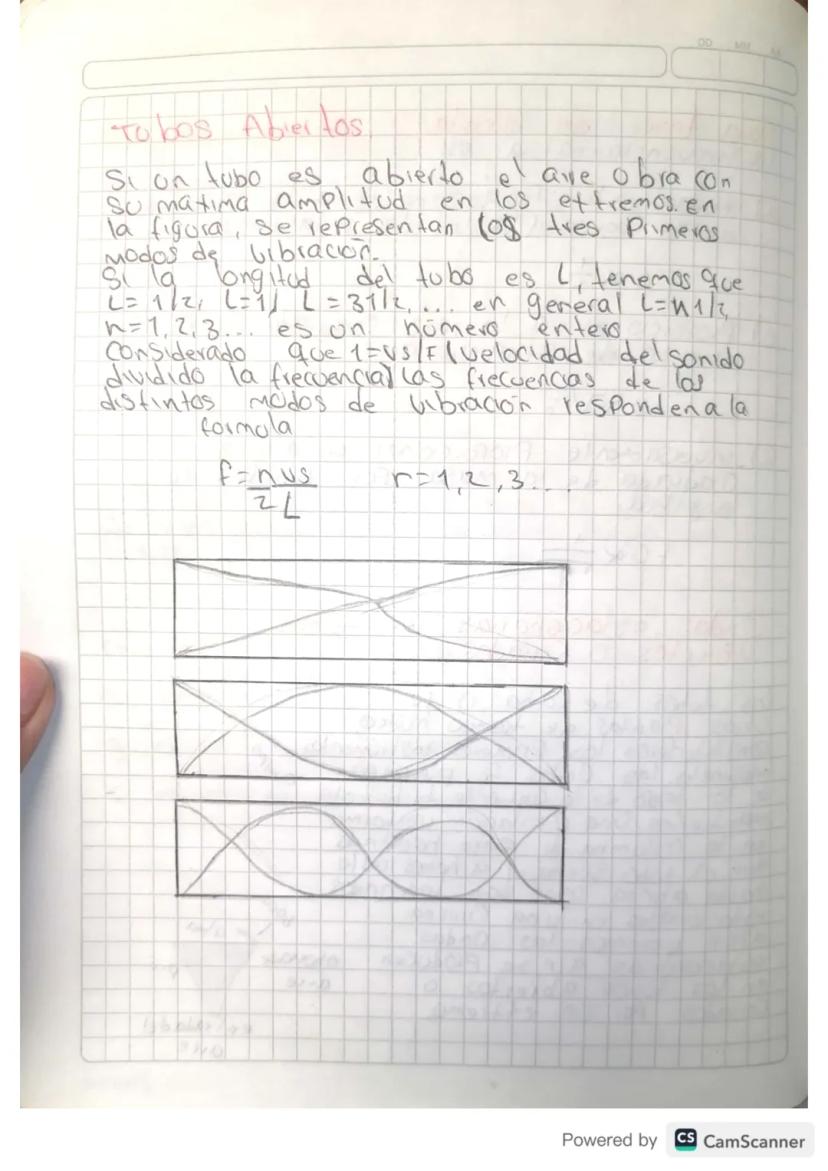 DD MM A
Tubos Abiertos
Si un tubo es abierto el aire obra con
su maxima amplitud en los extremos. en
la figura, se representan los tres Primeros
modos de vibración.
Si la longitud del tubo es L, tenemos que
L= 1/2, L=1, L=31/2, ... en general L=n1/2,
n=1,2,3... es un número entero
Considerado que 1=vs/F (velocidad del sonido
dividido la frecuencia) las frecuencias de los
distintos modos de vibración responden a la
formula
f= nvs / 2L n=1,2,3...
Powered by CS CamScanner